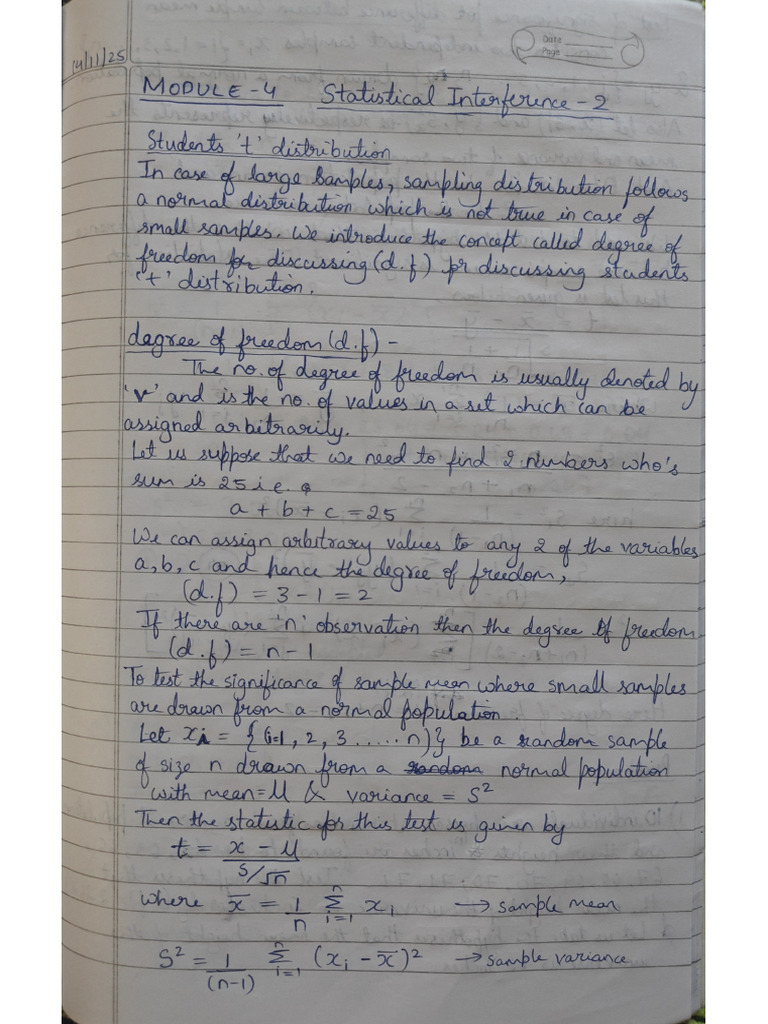 Date
Page
14/11/25
MODULE-4 Statistical Interference-2
Students 't' distribution
In case of large samples, sampling distribution follows
a normal distribution which is not true in case of
small samples. We introduce the concept called degree of
freedom for discussing (d.f) for discussing students
't' distribution.
degree of freedom (d.f) -
The no. of degree of freedom is usually denoted by
'v' and is the no. of values in a set which can be
assigned arbitrarily.
Let us suppose that we need to find 2 numbers who's
sum is 25 i.e.
a + b + c = 25
We can assign arbitrary values to any 2 of the variables
a, b, c and hence the degree of freedom,
(d.f) = 3 - 1 = 2
If there are 'n' observation then the degree of freedom
(d.f) = n - 1
To test the significance of sample mean where small samples
are drawn from a normal population.
Let xi = {(i=1, 2, 3 ..... n)} be a random sample
of size n drawn from a random normal population
with mean = μ & variance = S²
Then the statistic for this test is given by
t = x - μ
S/√n
where x̄ = 1/n Σ i=1 n xi → sample mean
S² = 1/(n-1) Σ i=1 n (xi - x̄)² → sample variance